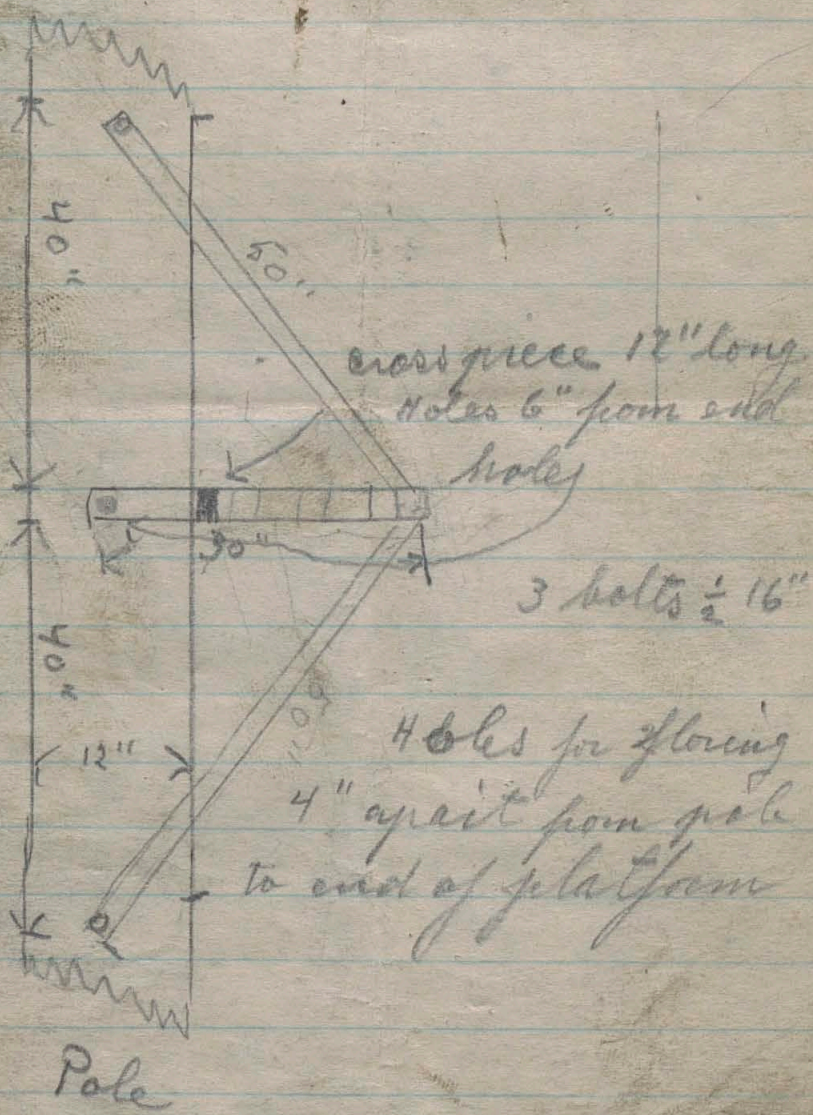 40"
50"
cross piece 12" long
Holes 6" from end
holes
30"
3 bolts ½ 16"
40"
50"
12"
Holes for floring
4" apart from pole
to end of platform
Pole